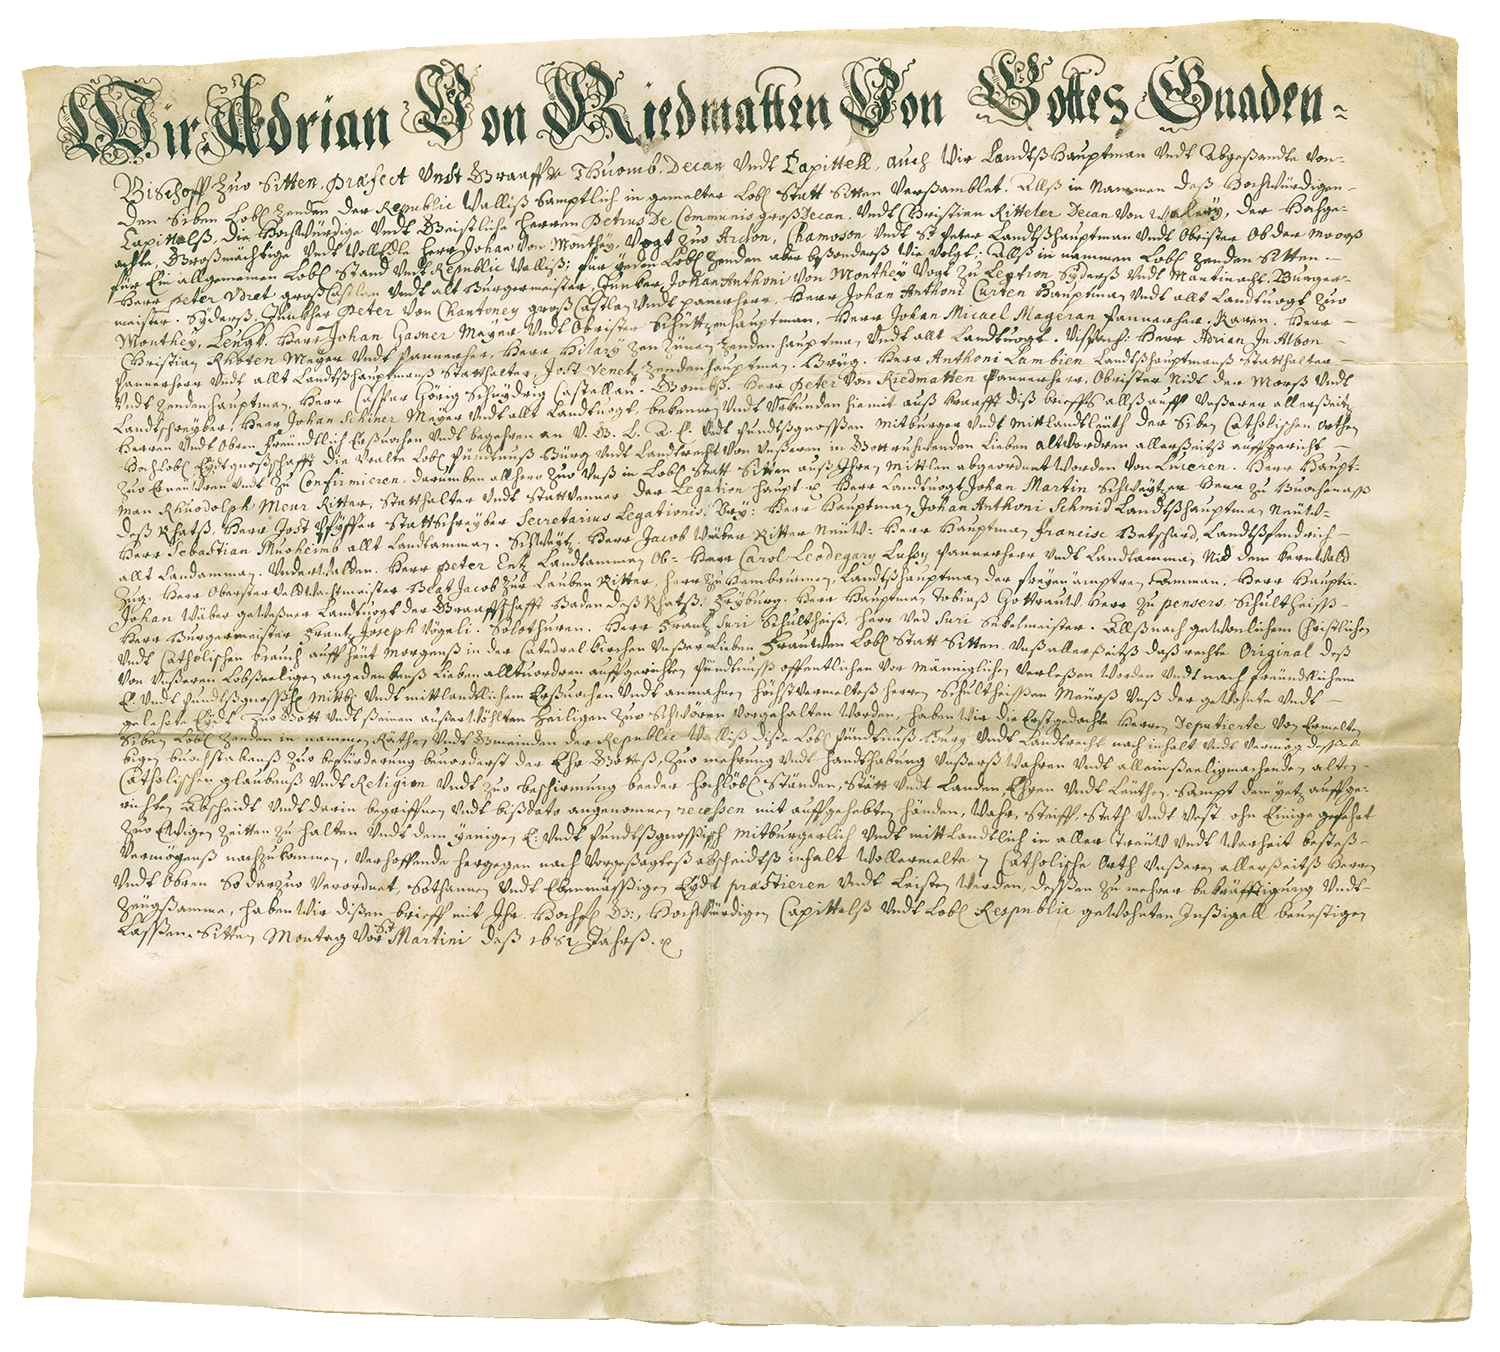 Wir Adrian Von Riedmatten Von Gottes Gnaden-
Bischoff Zuo Sitten, Præfect Undt Graaff Thuomb. Decan Undt Capittell, auch Wir Landtßhauptman Undt Abgeßandte Von-
den Siben Lobl Zenden der Republic Walliß Samptlich in gemelter Lobl Statt Sitten Verßamblet. Allß in Nammen deß Hochwürdigen-
Capittelß, die Hochwürdige Undt Geistliche Herren Petrus De Communis großDecan, Undt Christien Ritteler Decan Von Valery, der Hochge-
achte, Großmächtige Undt Wolledle Herr Johan Von Monthey, Vogt Zuo Ardon, Chamoson Undt St Peter Landtßhauptman Undt Obrister Ob der Moorß
für Ein allgemeinen Lobl Stand Undt Republic Walliß; für jeden Lobl Zenden aber bsonderß Wie Volgt. Allß in nammen Lobl Zenden Sitten.-
Herr Peter Udret großCastlan Undt alt Burgermeister, Juncker Johan Anthoni Von Monthey Vogt Zu Leytron, Syderß Undt Martinacht, Burger-
meister. Syderß, Juncker Peter Von Chantoney großCastlan Undt Pannerherr, Herr Johan Anthoni Curten Hauptman Undt allt Landtvogt Zuo
Monthey, Leugk. Herr Johan Gasner Meyer Undt Obrister Schützenhauptman, Herr Johan Micael Mageran Pannerherr. Raren. Herr-
Christian Rhoten Meyer Undt Pannerherr, Herr Hilary Zen Zünen Zendenhauptman Undt allt Landtvogt. Vischach: Herr Adrian In Albon-
Pannerherr Undt allt Landtßhauptmanß Statthalter, Jost Venetz Zendenhauptman. Bryg. Herr Anthoni Lambien Landtßhauptmanß Statthalter-
Undt Zendenhauptman, Herr Caspar Görig Schnydrig Castellan. Gombß. Herr Peter Von Riedmatten Pannerherr, Obrister Nidt der Morß Undt
Landtschreyber, Herr Johan Schiner Meyer Undt allt Landtvogt, bekennen Undt Urkunden hiemit auß krafft diß brieffß allßauff Unßerer allerßeitß
Herren Undt Obern freundtlich Erßuochen Undt begehren an V. G. L. A. E. Undt Pundtßgnoßßen Mitburger Undt Mittlandtleüth der Siben Catholischen Orthen
Hochlobl Eydtgnoßschafft die Uralte Lobl Pündtnuß Burg Undt Landtrecht Von Unßeren in Gott ruhenden Lieben altVordren allerßeitß auffgericht
Zuo Erneüwren Undt Zu Confirmieren. darumben allhero Zuo Unß in Lobl Statt Sitten auß Ihren Mittlen abgeordnet Worden Von Lucern. Herr Haupt-
man Rhuodolph Meur Ritter, Statthalter Undt Stattvenner der Legation haupt. Herr Landtvogt Johan Martin Schwytzer Herr Zu Buochenaß
deß Rhatß, Herr Jost Pfyffer Stattschreyber Secretarius Legationis. Vry: Herr Hauptman Johan Anthoni Schmid Landtßhauptman Neüw-
Herr Sebastian Muoheimb allt Landtamman. Schweytz. Herr Jacob Wäber Ritter Neüw- Herr Hauptman Francisc Betschard, Landtßfendrich-
allt Landamman. Underwalden. Herr Peter Entz Landtamman Ob- Herr Carol Leodegary Lussy Pannerherr Undt Landtamman Nid dem KernWald
Zug. Herr Oberster Veldwachtmeister Beat Jacob Zur Lauben Ritter, Herr Zu Hembrunnen, Landtßhauptman der freyen ämptren Amman. Herr Hauptm.
Johan Wäber geweßner Landtvogt der Graaffschafft Baden deß Rhatß. Fryburg. Herr Hauptman Tobiaß Gottrauw Herr Zu Pensers Schultheiß-
Herr Burgermeister Frantz Joseph Vögeli. Solothuren. Herr Frantz Suri Schultheiß, Herr Urs Suri Sekelmeister. Allßnach gewonlichem Christlichen
Undt Catholischen brauch auff heüt Morgenß in der Catedral Kirchen Unßer Lieben Frauwen Lobl Statt Sitten. Unß allerßeitß daß rechte Original deß
Von Unßeren Lobßeeligen angedenckenß Lieben altvordren auffgerichten Pündtnuß offentlichen Vor Männiglichen Verleßen Worden Undt nach freündtlichem
E. Undt Pundtßgnoßßl Mittb Undt mittlandtlichem Erßuochen Undt anmahnen höchstvermelteß Herren Schultheißßen Meürß Unß der gewohnte Undt-
gelehrte Eydt Zuo Gott Undt ßeinen außerwöhlten Heiligen Zuo Schwören Vorgehalten Worden, haben Wir die Erstgedachte Herren Deputierte Von Ermelten
Siben Lobl Zenden in nammen Räthen Undt Gmeinden der Republic Walliß diße Lobl Pündtnuß Burg Undt Landtrecht nach inhalt Undt Vermög deßßel-
bigen buochstabenß Zuo befürderung bevorderst der Ehr Gotteß, Zuo mehrung Undt handthabung Unßerß Wahren Undt alleinßeeligmachenden alten-
Catholischen glaubenß Undt Religion Undt Zuo beschirmung beeder hochlobl. Ständen, Stätt Undt Landen Ehren Undt Leüthen. Sampt dem yetz auffge-
richten Abscheidt Undt darin begriffnen Undt bißdato angenomnen recessen mit auffgehebten händen, Wahr, Steiff, Stäth Undt Vest ohn Einige gefehrt
Zuo Ewigen Zeitten Zu halten Undt dem yenigen E: Undt Pundtßgnoßßisch Mitburgerlich Undt mittlandtlich in aller Treüw Undt Warheit besteß-
Vermögenß nachzukommen, Verhoffende hergegen nach Vorgeßagteß abscheidtß inhalt Wollermelte 7 Catholische Orth Unßeren allerßeitß Herren
Undt Obren So darzuo Verordnet, Sothannen Undt Ebenmäßßigen Eydt præstieren Undt Leisten Werden, deßßen Zu mehrer bekräfftigung Undt-
Zeügßamme, haben Wir dißen brieff mit Ihr Hochfl G:, Hochwürdigen Capittelß Undt Lobl Respublic gewohnten Inßigell bevestigen
Laßßen. Sitten Montag Vor Martini deß 1681 Jahrß.